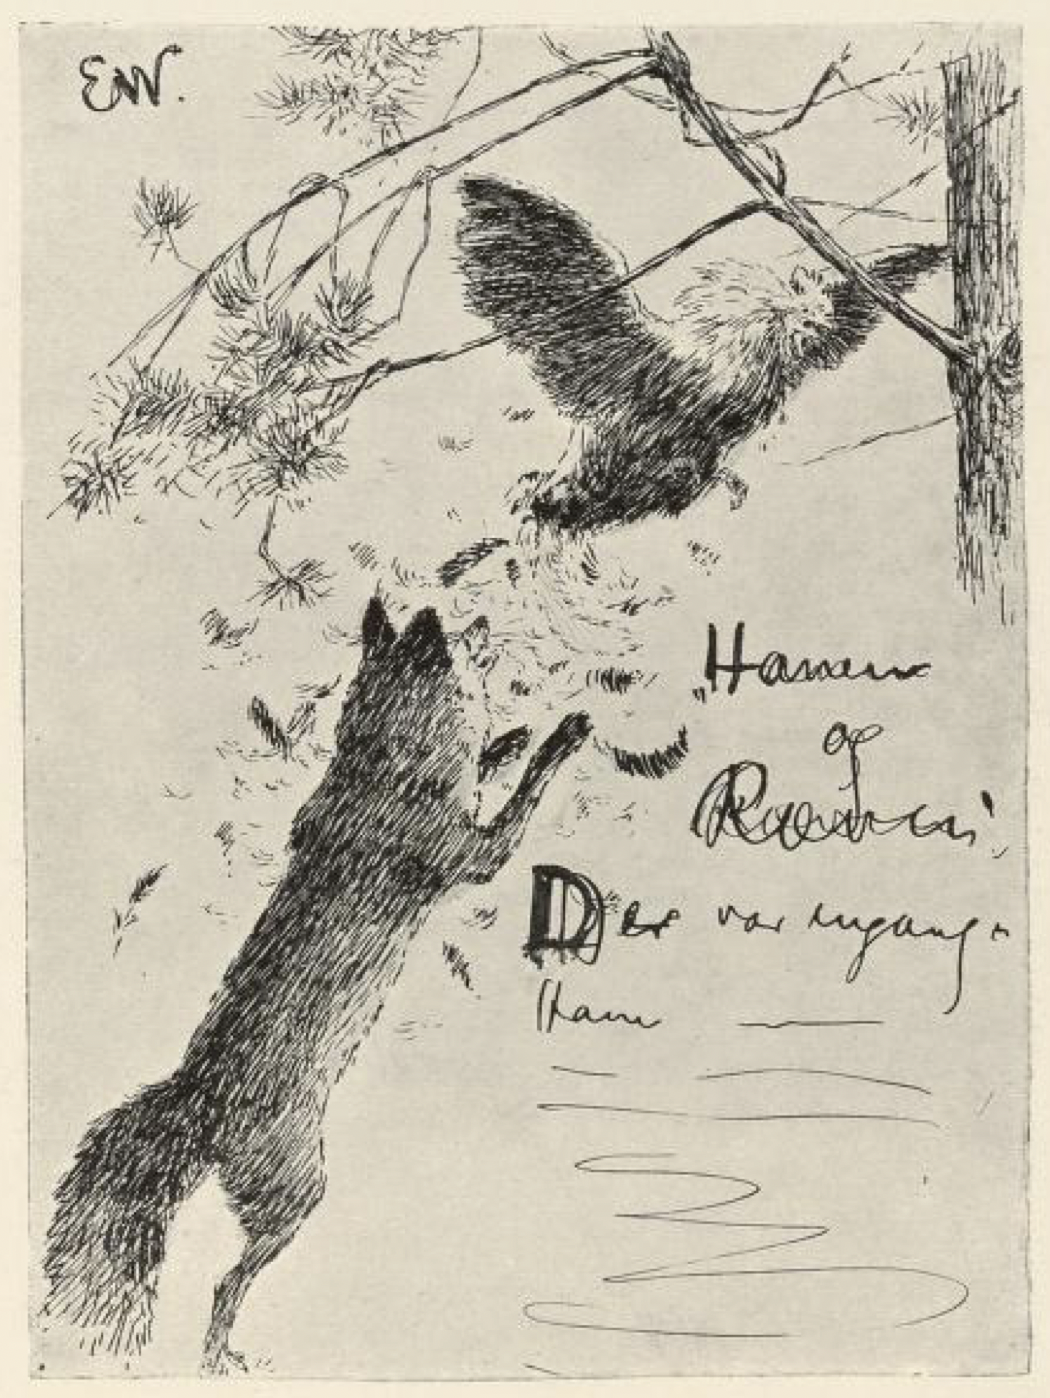 EW.
„Hanen
og
Ræven".
Der var engang
Hane